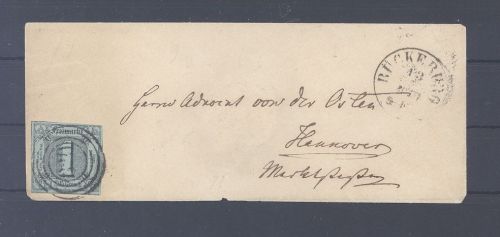 BÜCKEBURG
Herrn Advocat von der Osten
Hannover
Marktstraße
Freimarke
1